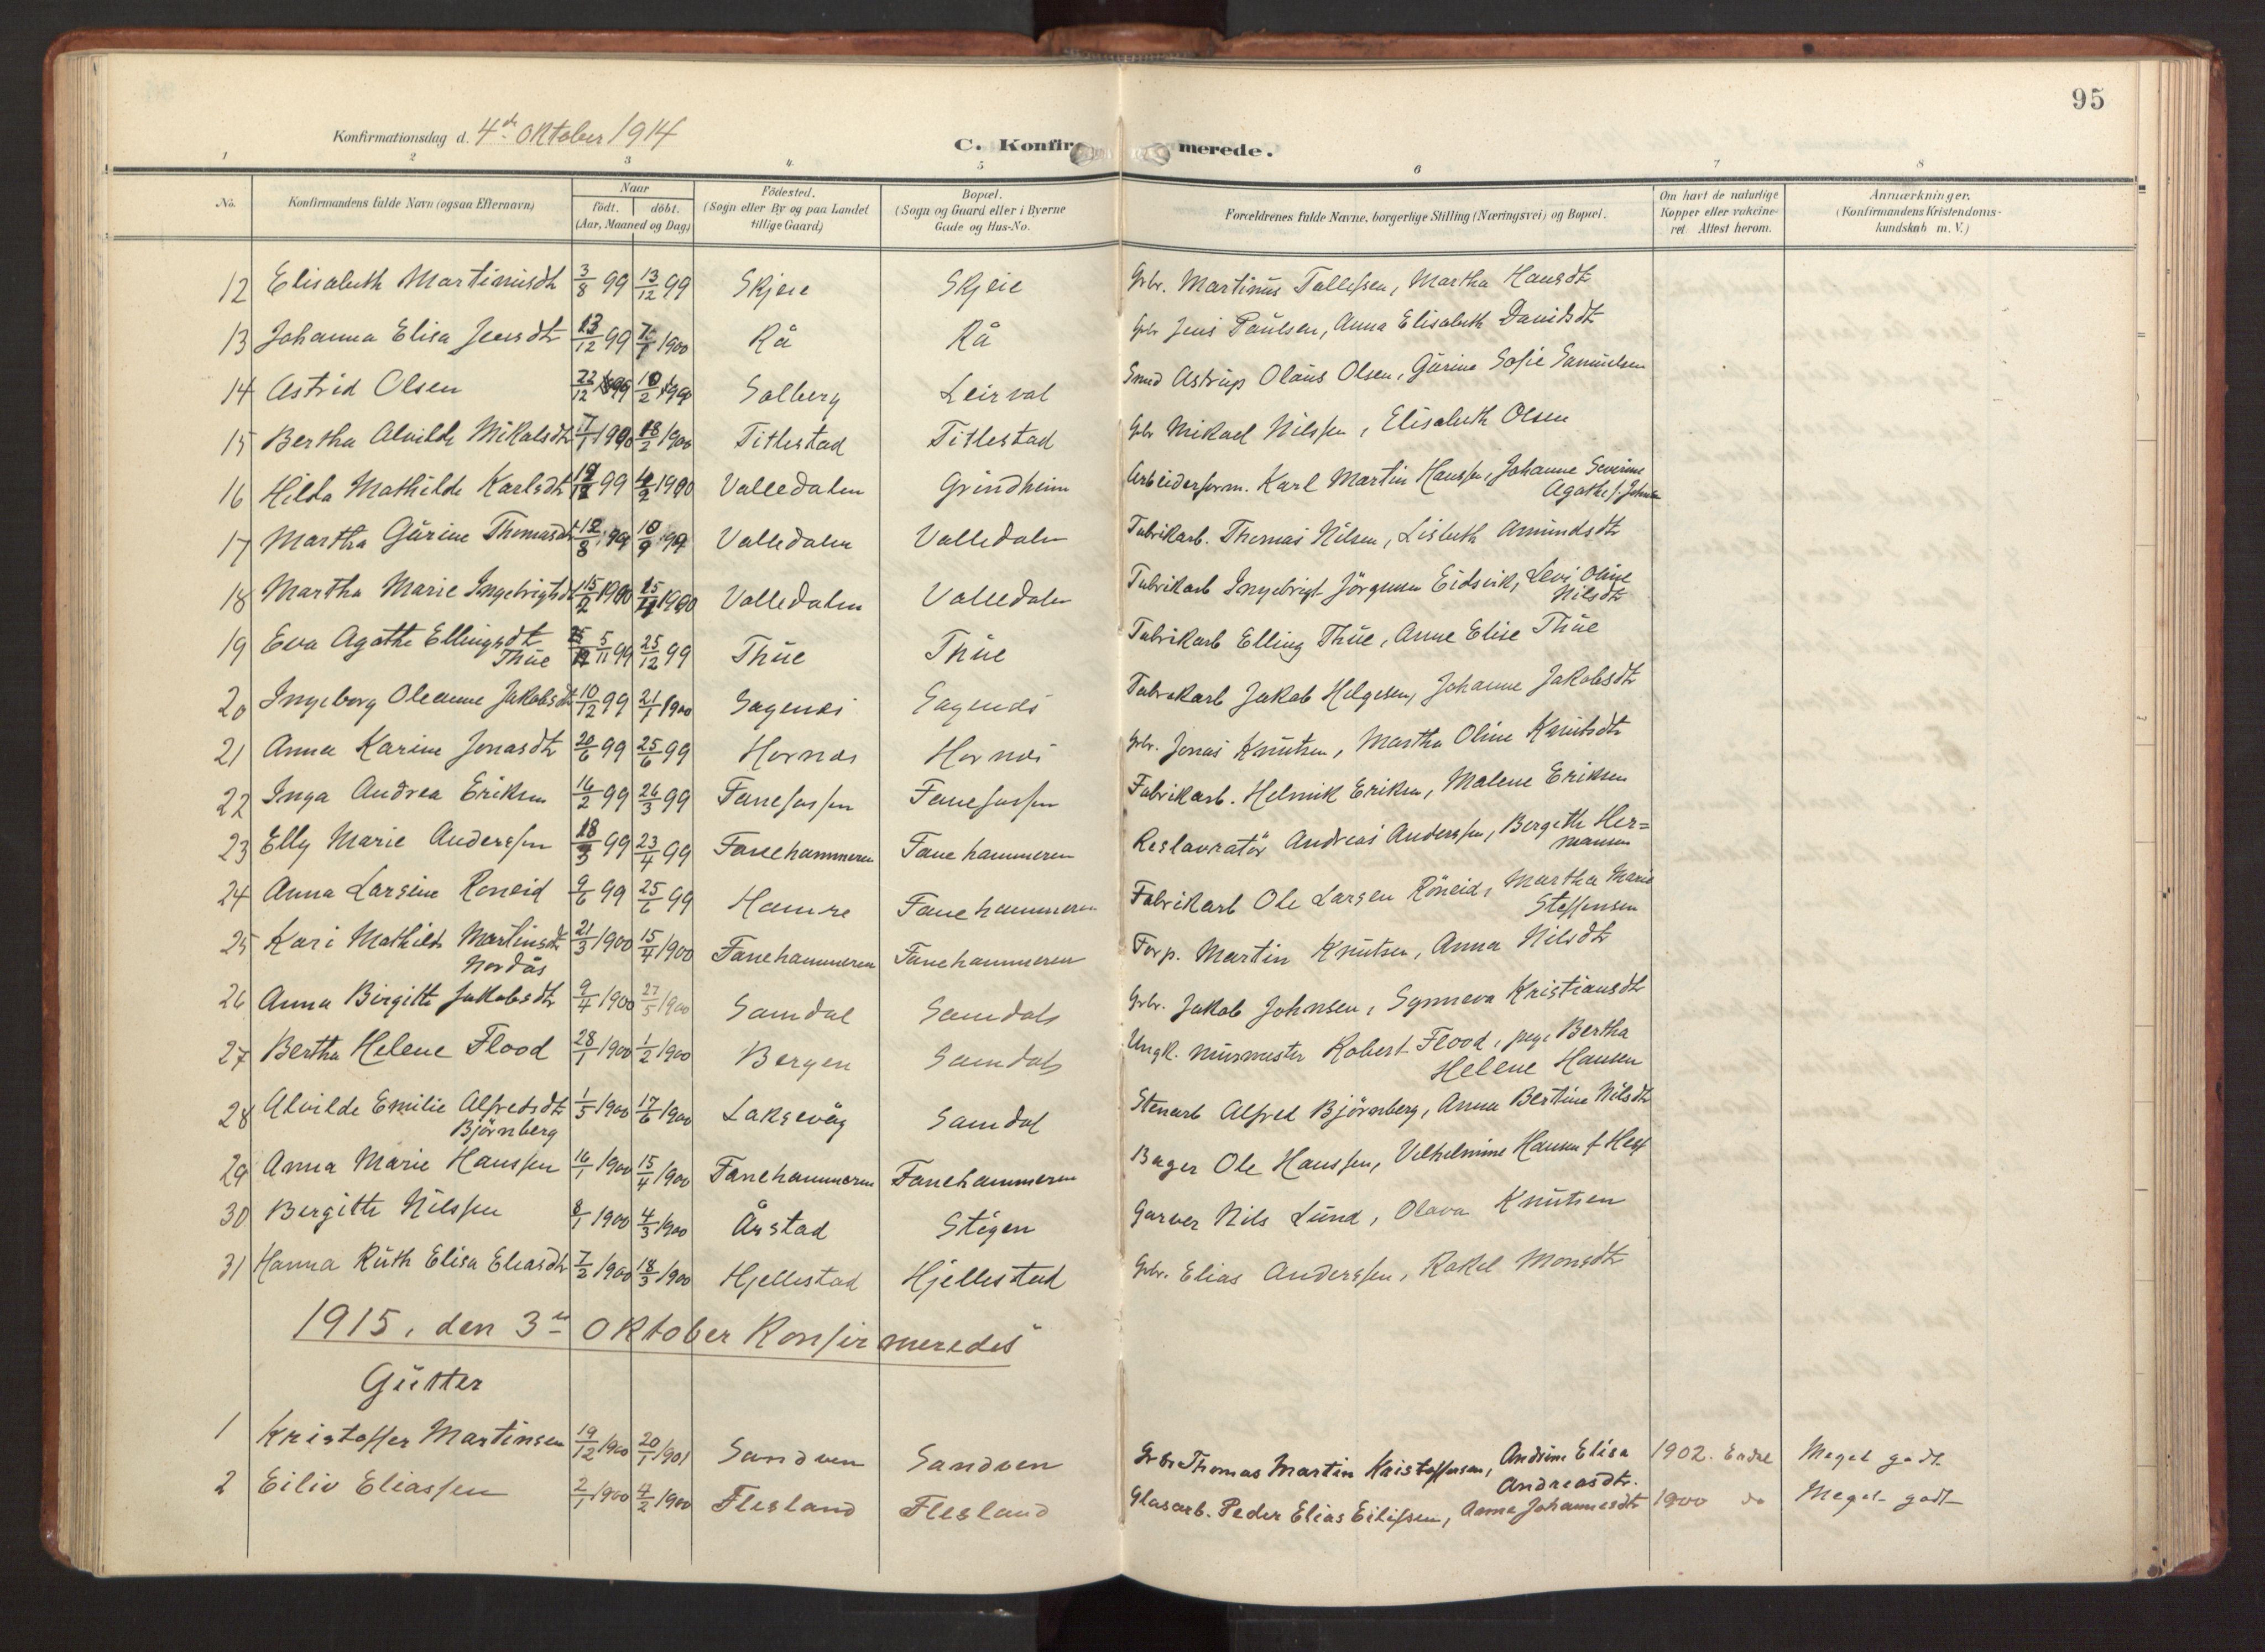 95
Konfirmationsdag d. 4de Oktober 1914
C. Konfir merede.
1 2 3 4. 5 6 7 8
No. Konfirmandens fulde Navn (ogsaa Efternavn) Naar födt. döbt. (Aar, Maaned og Dag) Födested. (Sogn eller By og paa Landet tillige Gaard) Bopæl. (Sogn og Gaard eller i Byerne Gade og Hus-No. Forældrenes fulde Navne, borgerlige Stilling (Næringsvei) og Bopæl. Om havt de naturlige Kopper eller vakcineret. Attest herom. Anmærkninger. (Konfirmandens Kristendomskundskab m. V.)
12 Elisabeth Martinusdtr 3/8 99 13/12 99 Skjeie Skjeie Gbr. Martinus Tollefsen, Martha Hansdtr
13 Johanna Elisa Jensdtr 13/12 99 1900 Rå Rå Gbr Jens Paulsen, Anna Elisabeth Davidsdtr
14 Astrid Olsen 22/12 99 10/2 Solberg Leirval Smed Astrup Olaus Olsen, Gurine Sofie Samuelsen
15 Bertha Alvilde Mikalsdtr 17/1 1900 18/2 1900 Titlestad Titlestad Gbr Mikael Nilssen, Elisabeth Olsen
16 Hilda Mathilde Karlsdtr 99 1900 Valledalen Grindheim Arbeiderform. Karl Martin Hanssen, Johanne Severine
Agathe f. Johnsen
17 Martha Gurine Thomasdtr 12/8 99 10/9 99 Valledalen Valledalen Fabrikarb. Thomas Nilsen, Lisbeth Amundsdtr
18 Martha Marie Ingebrigtsdtr 15/2 1900 1900 Valledalen Valledalen Fabrikarb Ingebrigt Jörgensen Eidsvik, Levi Oline
Nilsdtr
19 Eva Agathe Ellingsdtr 5/11 99 25/12 99 Thue Thue Fabrikarb Elling Thue, Anne Elise Thue
Thue
20 Ingeborg Oleanne Jakobsdtr 10/12 99 21/1 1900 Sagenes Sagenes Fabrikarb Jakob Helgesen, Johanne Jakobsdtr
21 Anna Karine Jonasdtr 20/6 99 25/6 99 Hornes Hornes Gbr. Jonas Knutsen, Martha Oline Knutsdtr
22 Inga Andrea Eriksen 16/2 99 26/3 99 Fanefossen Fanefossen Fabrikarb. Helmik Eriksen, Malene Eriksen
23 Elly Marie Anderssen 18/3 99 23/4 99 Fanehammeren Fanehammeren Restauratör Andreas Anderssen, Bergithe Her=
mansen
24 Anna Larsine Roneid 9/6 99 25/6 99 Hamre Fanehammeren Fabrikarb Ole Larsen Röneid, Martha Marie
Steffensen
25 Kari Mathilde Martinsdtr 21/3 1900 15/4 1900 Fanehammeren Fanehammeren Forp. Martin Knutsen, Anna Nilsdtr
Nordås
26 Anna Birgithe Jakobsdtr 9/4 1900 27/5 1900 Samdal Samdal Gbr. Jakob Johnsen, Synneva Kristiansdtr
27 Bertha Helene Flood 28/1 1900 1/2 1900 Bergen Samdal Ungk. murmester Robert Flood, pige Bertha
Helene Hansen
28 Alvilde Emilie Alfredsdtr 1/5 1900 17/6 1900 Laksevåg Samdal Stenarb Alfred Björnberg, Anna Bertine Nilsdtr
Björnberg
29 Anna Marie Hanssen 16/1 1900 15/4 1900 Fanehammeren Fanehammeren Bager Ole Hanssen, Vilhelmine Hansen f.
30 Bergithe Nilssen 8/1 1900 4/3 1900 Årstad Stigen Garver Nils Lund, Olava Knutsen
31 Hanna Ruth Elisa Eliasdtr 7/2 1900 18/3 1900 Hjellestad Hjellestad Gbr. Elias Anderssen, Rakel Monsdtr
1915, den 3de Oktober Konfirmeredes
Gutter
1 Kristoffer Martinsen 19/12 1900 20/1 1901 Sandven Sandven Gbr Thomas Martin Kristoffersen, Andrine Elisa 1902. Endre Meget godt
Andreasdtr.
2 Eiliv Eliassen 2/1 1900 4/2 1900 Flesland Flesland Glasarb. Peder Elias Eilifsen, Anna Johannesdtr 1900 do Meget godt